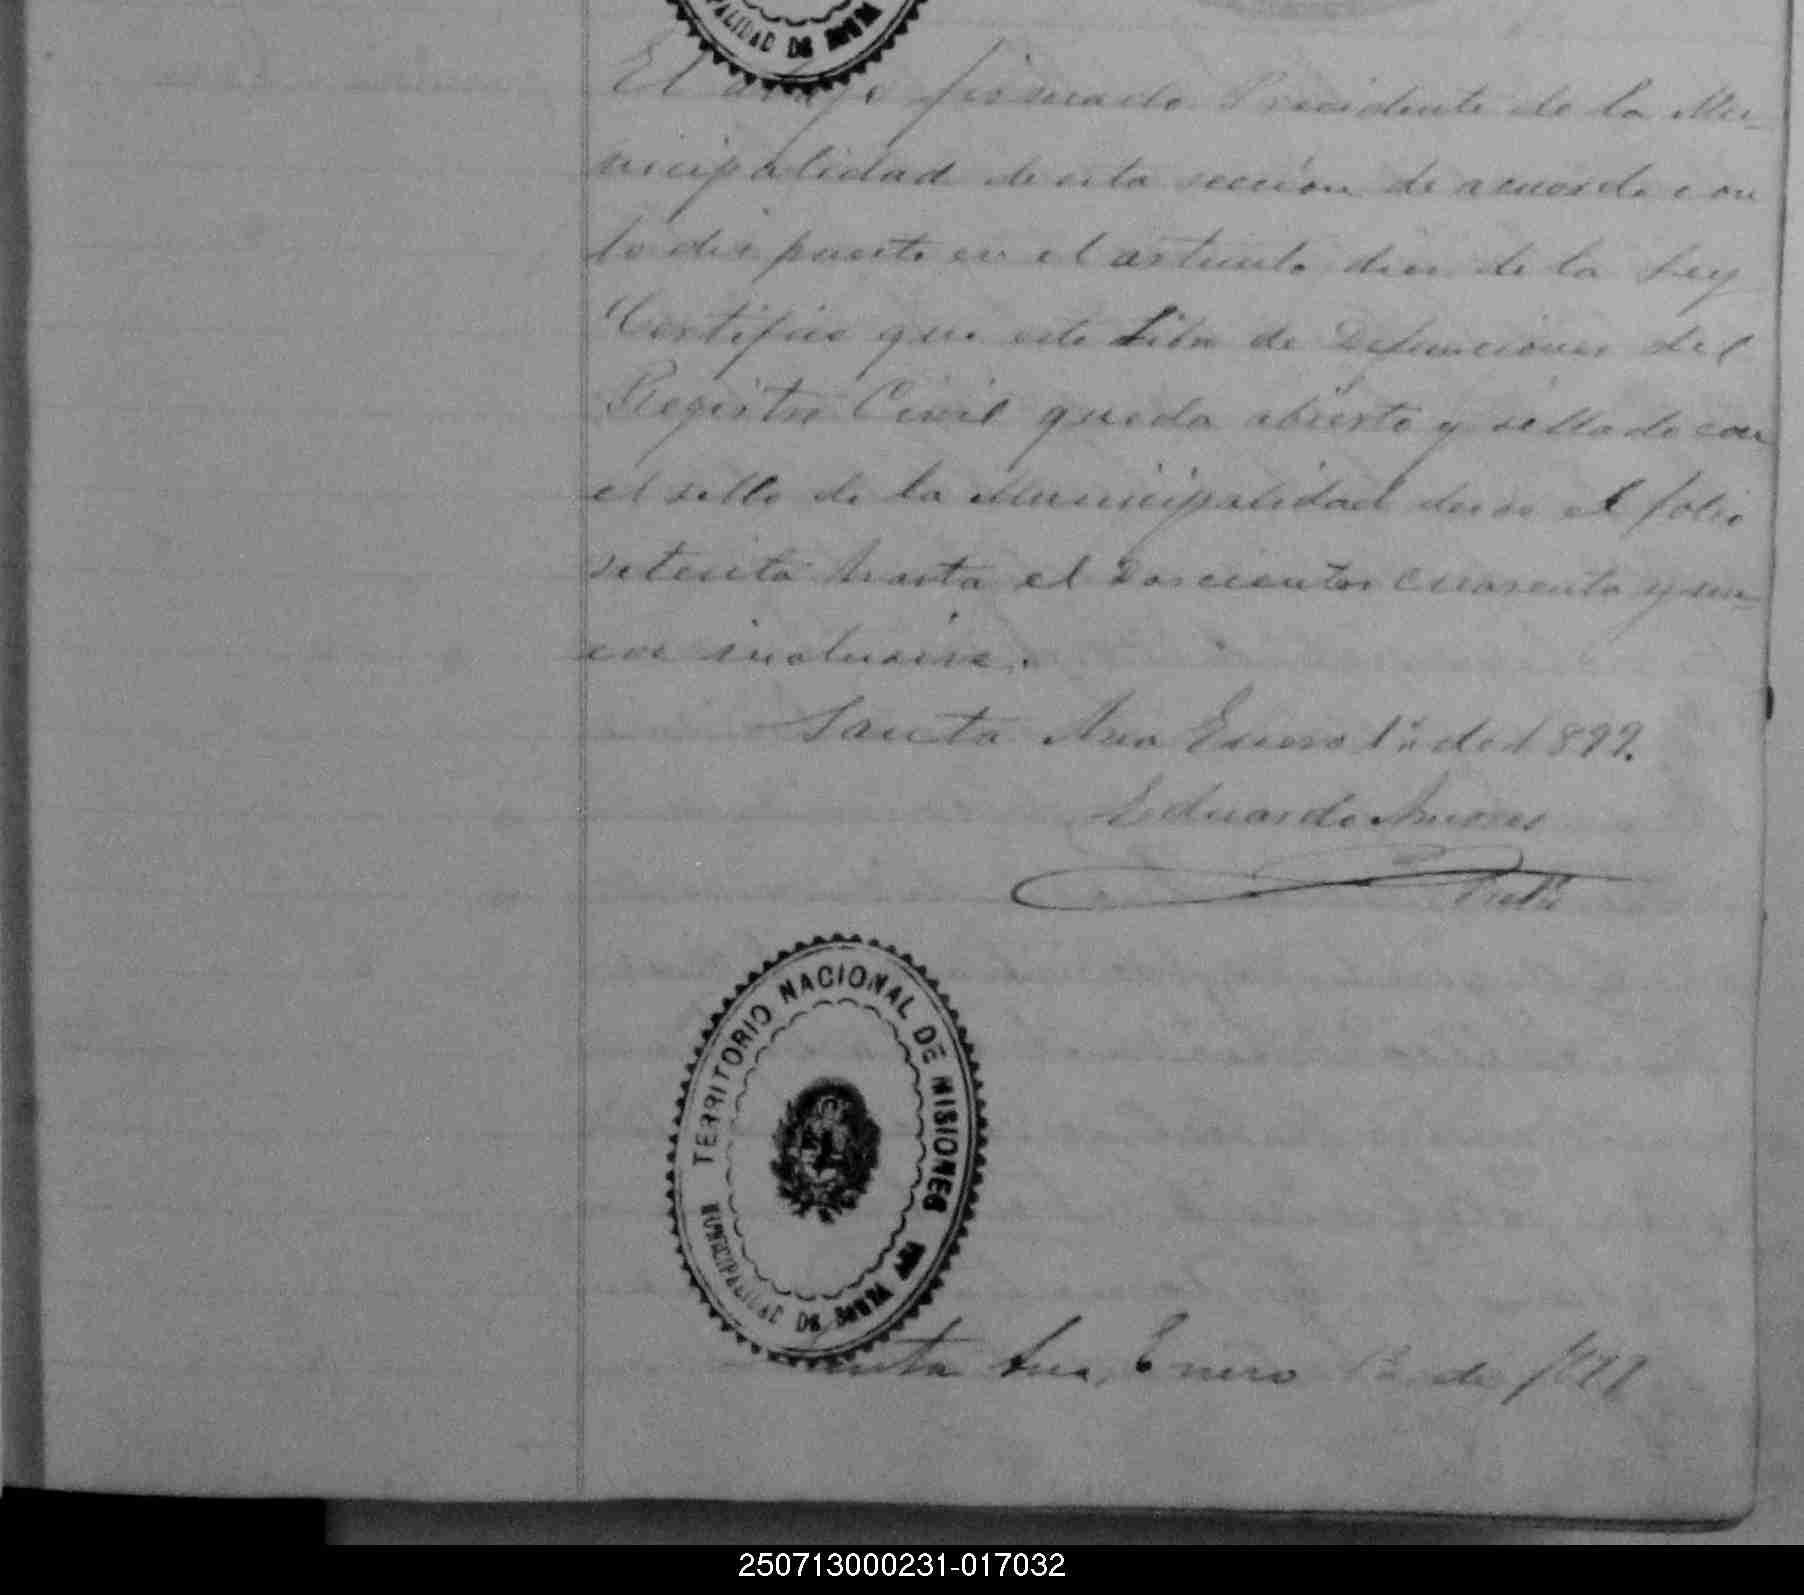 PALIDAD DE
El abajo firmado Presidente de la Mu-
nicipalidad de esta seccion de acuerdo con
lo dispuesto en el articulo diez de la Ley
Certifico que este Libro de Defunciones del
Registro Civil queda abierto y sellado con
el sello de la Municipalidad desde el folio
setenta hasta el Doscientos cuarenta y
inclusive.
Santa Ana Enero 1º de 1899.
Eduardo
TERRITORIO NACIONAL DE MISIONES
MUNICIPALIDAD DE SANTA ANA
Santa Ana, Enero de 1899
250713000231-017032